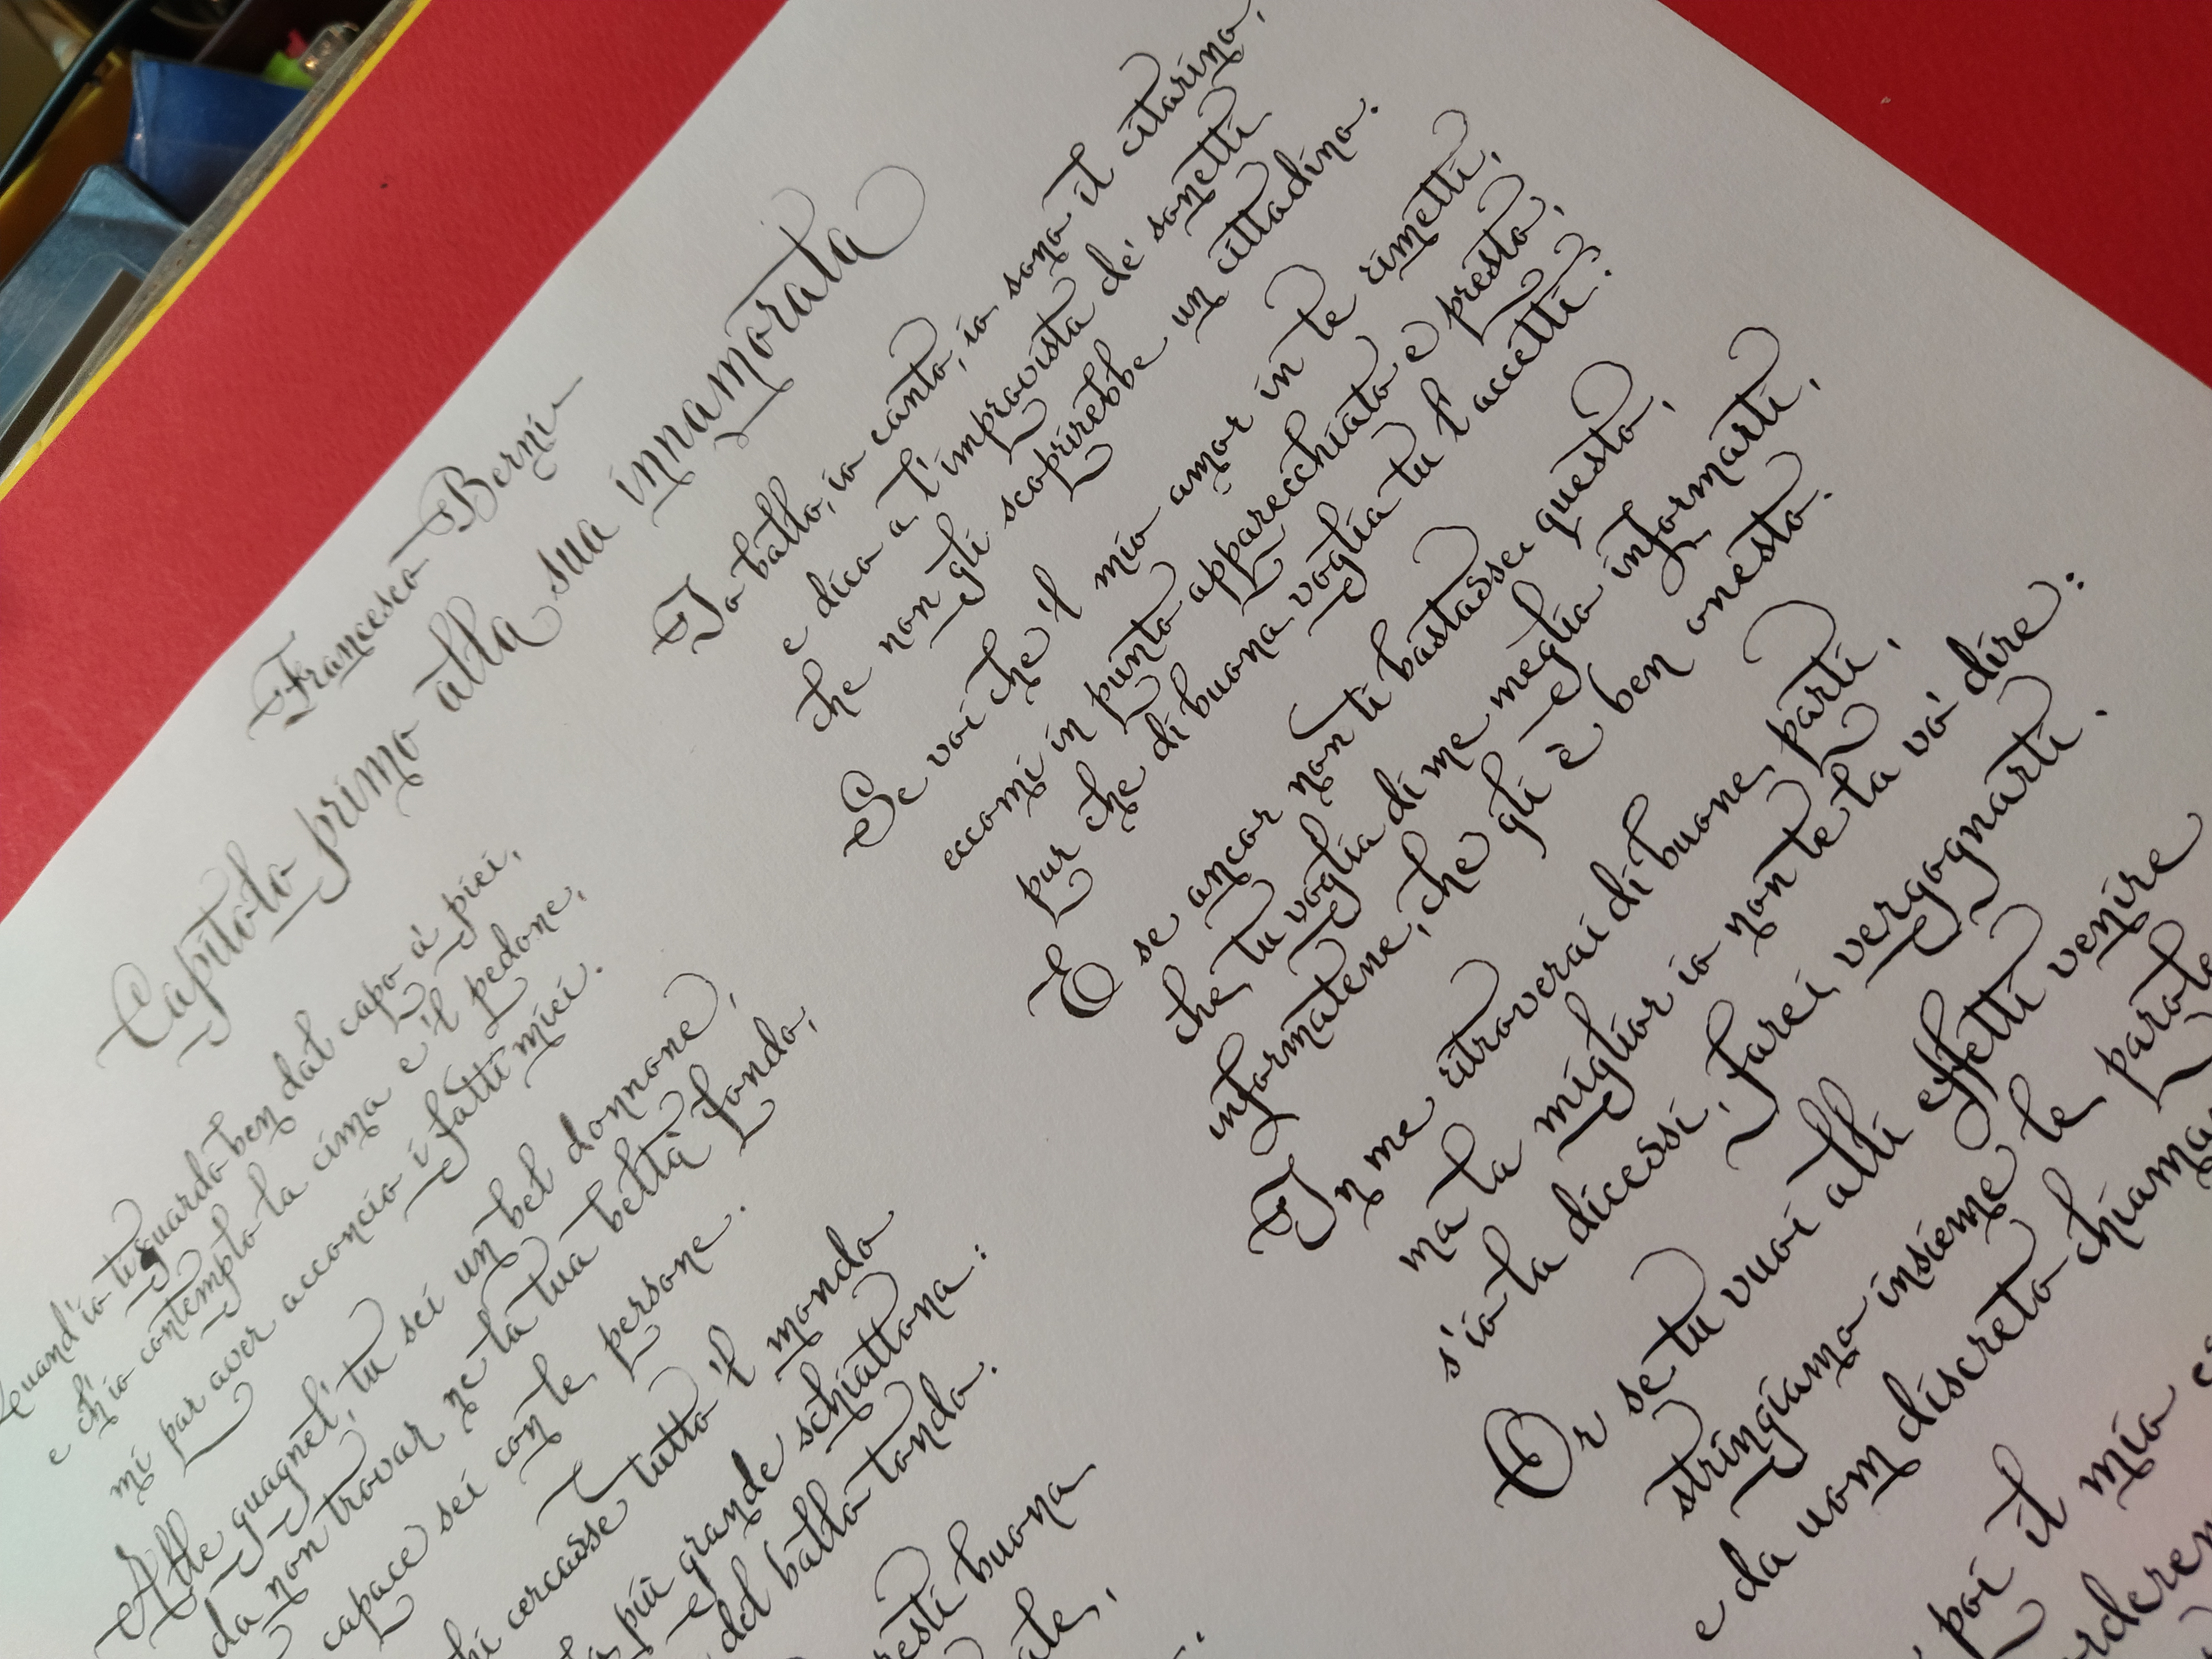 Francesco Berni
Capitolo primo alla sua innamorata
Quand'io ti guardo ben dal capo a' piei,
e ch'io contemplo la cima e 'l pedone,
mi par aver acconcio i fatti miei.
Alle guagnel', tu sei un bel donnone,
da non trovar ne la tua beltà fondo,
capace sei con le persone.
chi cercasse tutto 'l mondo
più grande schiattona:
del ballo tondo.
resti buona
Io ballo, io canto, io sono il citarino,
e dico a l'improvista de' sonetti
che non gli scoprirebbe un cittadino.
Se voi che 'l mio amor in te rimetti,
eccomi in punto apparecchiato e presto,
pur che di buona voglia tu l'accetti.
E se ancor non ti bastasse questo,
che tu voglia di me meglio informarti,
informatene, che gli è ben onesto.
In me ritroverai di buone parti,
ma la miglior io non te la vo' dire:
s'io la dicessi, farei vergognarti.
Or se tu vuoi alli effetti venire
stringiamo insieme le parole
e da uom discreto
poi il mio